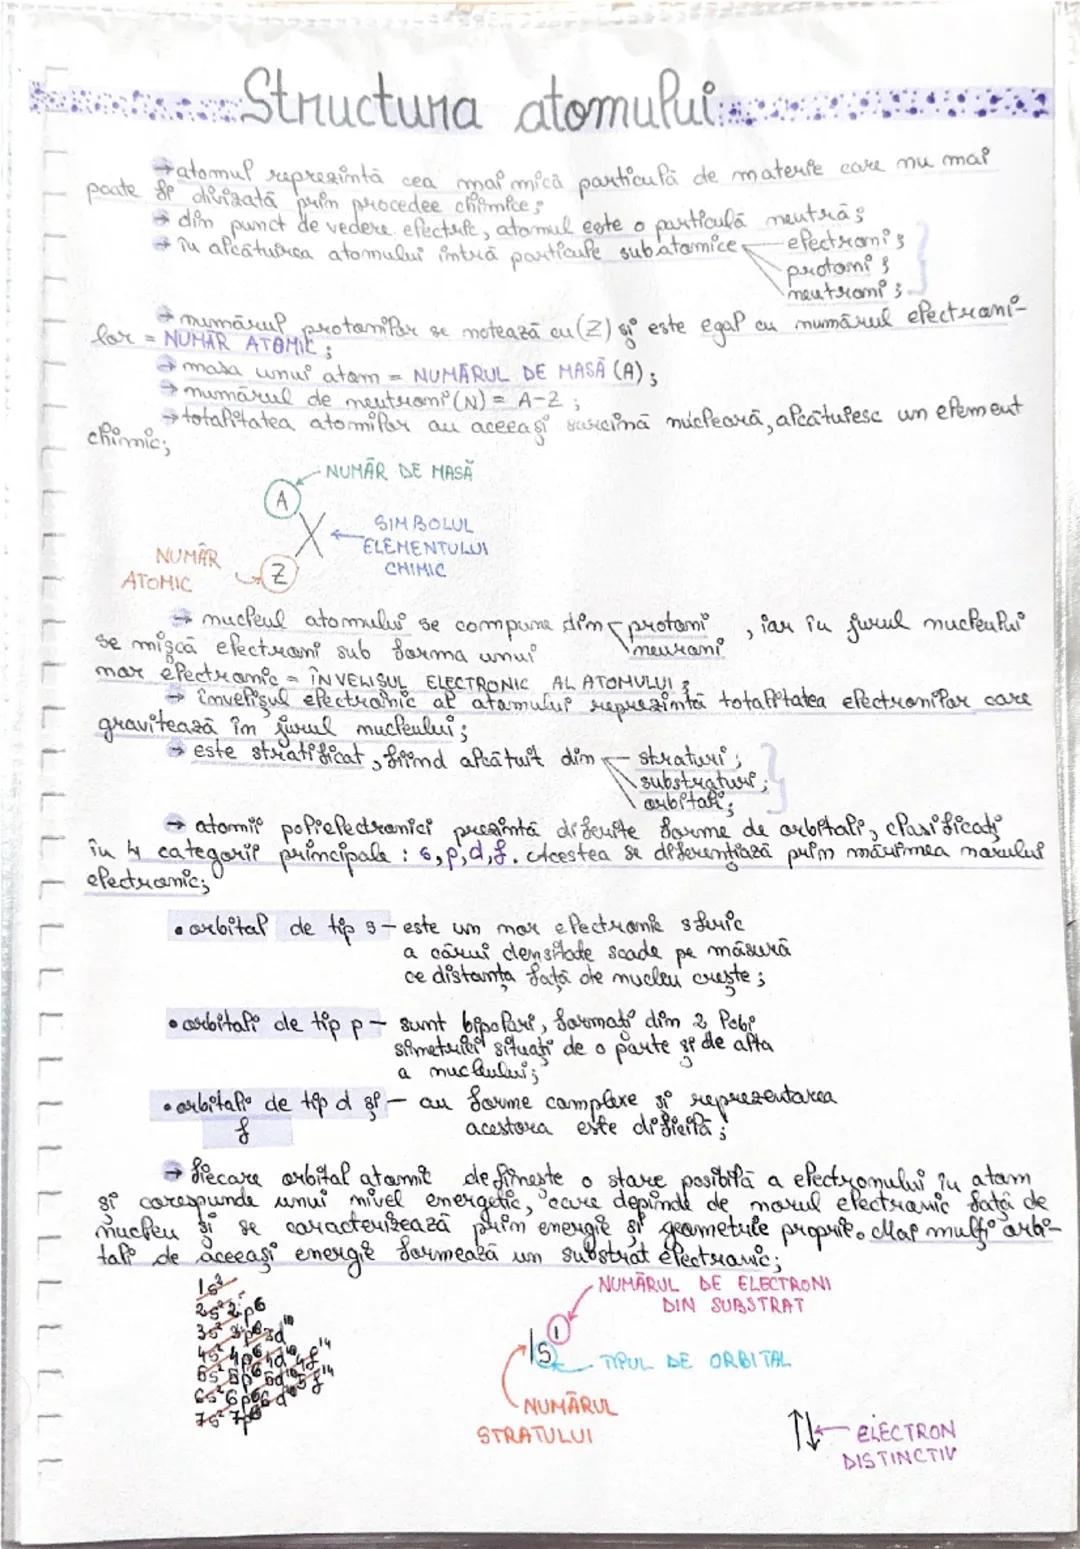 Structura atomului
→ atomul reprezintă cea mai mică particulă de materie care nu mai
poate fi divizată prin procedee chimice;
→ din punct de vedere electric, atomul este o particulă neutră;
→ în alcătuirea atomului intră particule subatomice electroni;
protoni;
neutroni;
→ numărul protonilor se notează cu (Z) și este egal cu numărul electroni-
lor = NUMĂR ATOMIC;
→ masa unui atom = NUMĂRUL DE MASĂ (A);
→ numărul de neutroni (N) = A-Z;
→ totalitatea atomilor au aceeași sarcină nucleară, alcătuiesc un element
chimic;
NUMĂR DE MASĂ
A
X
SIMBOLUL
ELEMENTULUI
CHIMIC
NUMĂR
ATOMIC
Z
→ nucleul atomului se compune din protoni, iar în jurul nucleului
neuroni
se mișcă electroni sub forma unui
nor electronic = ÎNVELIȘUL ELECTRONIC AL ATOMULUI;
→ învelișul electronic al atomului reprezintă totalitatea electronilor care
gravitează în jurul nucleului;
→ este stratificat, fiind alcătuit din straturi;
substraturi;
orbitali;
→ atomii polielectronici prezintă diferite forme de orbitali, clasificați
în 4 categorii principale: s, p, d, f. Acestea se diferențiază prin mărimea norului
electronic;
• orbital de tip s - este un nor electronic sferic
a cărui densitate scade pe măsură
ce distanța față de nucleu crește;
• orbitali de tip p - sunt bipolari, formați din 2 lobi
simetrici situați de o parte și de alta
a nucleului;
• orbitali de tip d și - au forme complexe și reprezentarea
f acestora este dificilă;
→ fiecare orbital atomic definește o stare posibilă a electronului în atom
și corespunde unui nivel energetic, care depinde de norul electronic față de
nucleu și se caracterizează prin energie și geometrie proprie. Mai mulți orbi-
tali de aceeași energie formează un substrat electronic;
1s²
2s² 2p⁶
3s² 3p⁶ 3d¹⁰
4s² 4p⁶ 4d¹⁰ 4f¹⁴
5s² 5p⁶ 5d¹⁰ 5f¹⁴
6s² 6p⁶ 6d¹⁰
7s² 7p⁶
NUMĂRUL DE ELECTRONI
DIN SUBSTRAT
1s¹
TIPUL DE ORBITAL
NUMĂRUL
STRATULUI
↑↓ ELECTRON
DISTINCTIV